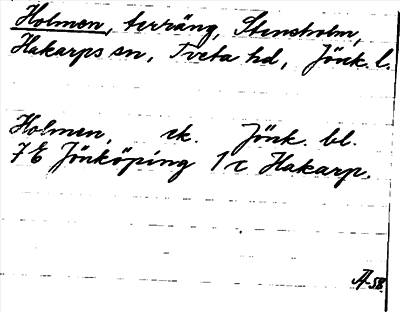 Holmen, terräng, Stensholm,
Hakarps sn, Tveta hd, Jönk. l.
Holmen, rk. Jönk. bl.
7E Jönköping 1 c Hakarp.
A-58.